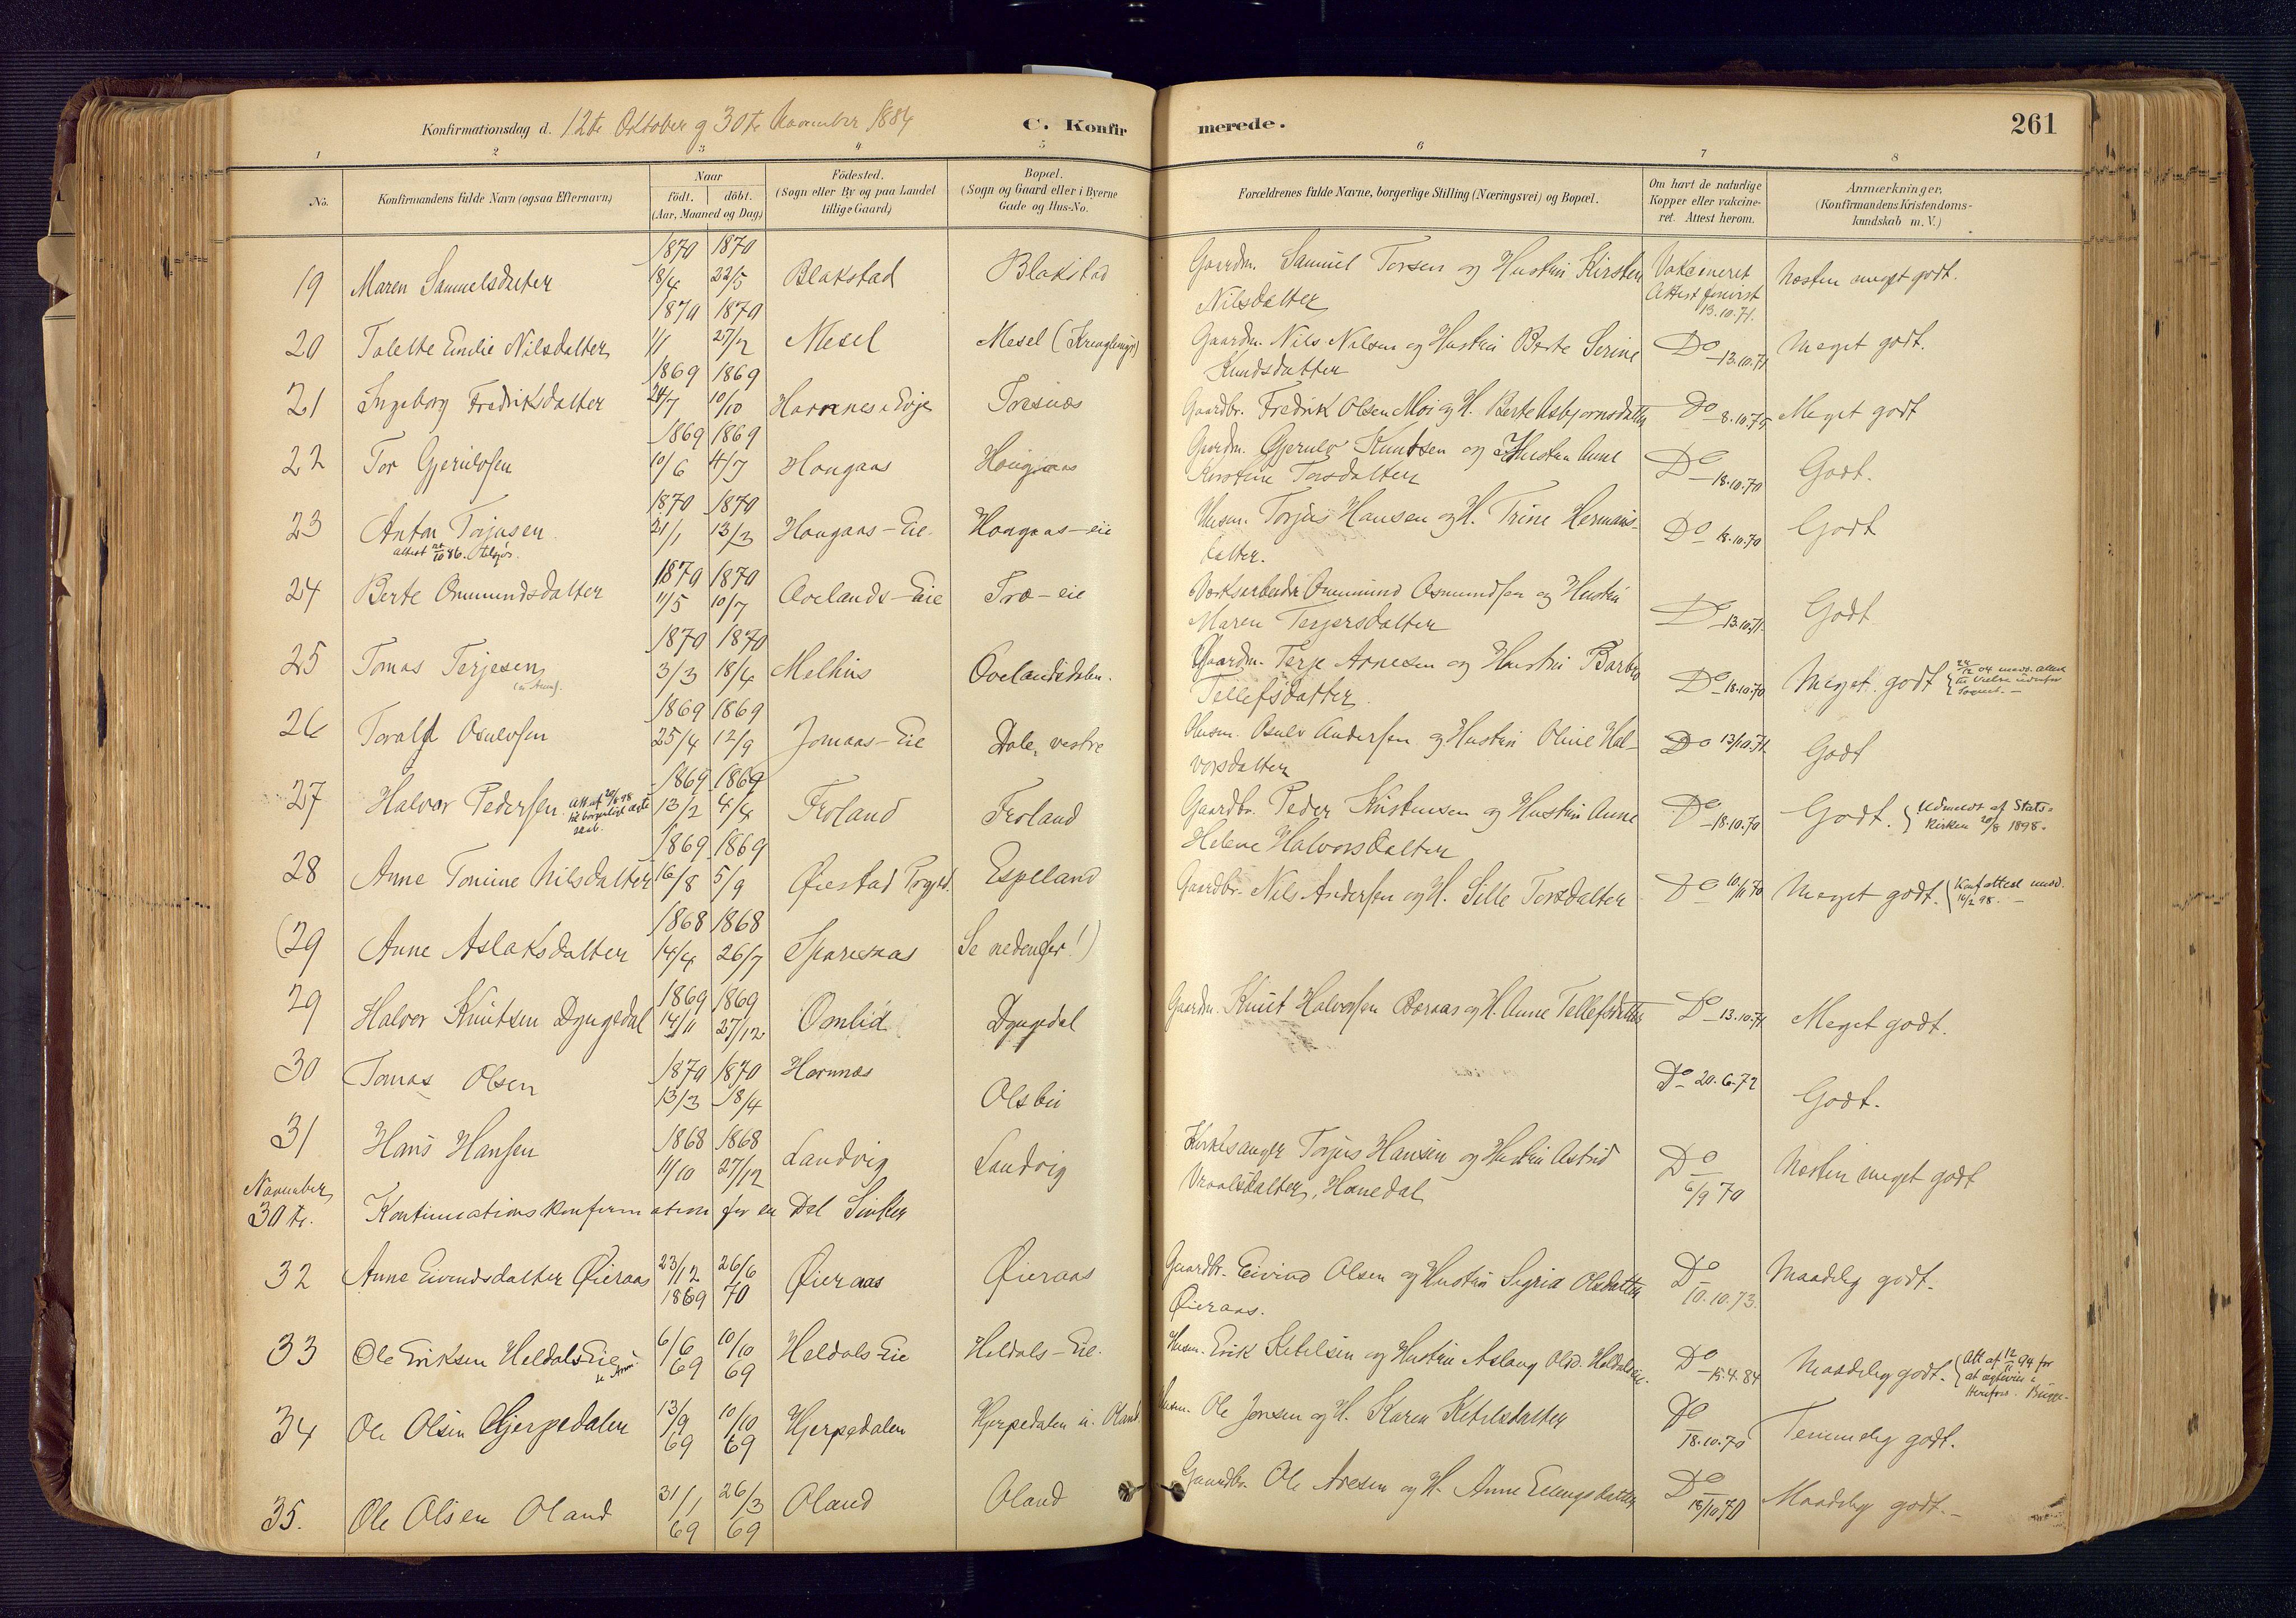 Konfirmationsdag d. 12te Oktober og 30te November 1884 C. Konfirmerede. 261
1 2 3 4 5 6 7 8
No. Konfirmandens fulde Navn (ogsaa Efternavn) Naar födt. döbt. (Aar, Maaned og Dag) Födested. (Sogn eller By og paa Landet tillige Gaard) Bopæl. (Sogn og Gaard eller i Byerne Gade og Hus-No. Forældrenes fulde Navne, borgerlige Stilling (Næringsvei) og Bopæl. Om havt de naturlige Kopper eller vakcineret. Attest herom. Anmærkninger. (Konfirmandens Kristendomskundskab m. V.)
19 Maren Samuelsdatter 1870 18/4 1870 22/5 Blakstad Blakstad Gaardm. Samuel Torsen og Hustru Kirsten Nilsdatter Vakcineret Attest forevist 13.10.71. Næsten meget godt.
20 Talette Emilie Nilsdatter 1870 1/1 1870 27/2 Mesel Mesel Gaardm. Nils Nilsen og Hustru Berte Serine Knudsdatter Do 13.10.71 Meget godt.
21 Ingeborg Fredriksdatter 1869 24/7 1869 10/10 Hornnes i Evje Tresnæs Gaardbr. Fredrik Olsen Moi og H. Berte Asbjørnsdatter Do 8.10.75 Meget godt
22 Tor Gjerulvsen 1869 10/6 1869 4/7 Hougaas Hougaas Gaardm. Gjerulv Knutsen og Hustru Anne Kirstine Torsdatter Do 18.10.70 Godt.
23 Anton Torjusen 1870 21/1 1870 13/3 Hougaas-Eie Hougaas-eie Husm. Torjus Hansen og H. Trine Hermansdatter. Do 18.10.70 Godt
24 Berte Ommundsdatter 1870 11/5 1870 10/7 Ovelands-Eie Træ-eie Verksarbeider Ommund Osmundsen og Hustru Maren Terjersdatter Do 13.10.71. Godt
25 Tomas Terjesen 1870 3/3 1870 18/4 Melhus Ovelandsdalen. Gaardm. Terje Arnesen og Hustru Barbro Tellefsdatter. Do 18.10.70 Meget godt
26 Torald Osulvsen 1869 25/4 1869 12/9 Jomaas-Eie Dale, vestre Husm. Osulv Andersen og Hustru Oline Halvorsdatter Do 13/10.71 Godt
27 Halvor Pedersen 1869 13/2 1869 4/4 Froland Froland Gaardbr. Peder Kristensen og Hustru Anne Helene Halvorsdatter Do 18.10.70 Godt. Udmeldt af Stats-Kirken 20/8 1898.
28 Anne Tomine Nilsdatter 1869 16/8 1869 5/9 Øiestad Prgjd. Espeland Gaardbr. Nils Andersen og H. Sille Torsdatter Do 10/11 70 Meget godt. Konf attest 16/2 98.
(29 Anne Aslaksdatter 1868 14/4 1868 26/7 Sparsnaas Se nedenfor!)
29 Halvor Knutsen Dyngedal 1869 14/11 1869 27/12 Omlid Dyngedal Gaardm. Knut Halvorsen Beraas og H. Anne Tellefsdatter Do 13.10.71 Meget godt.
30 Tomas Olsen 1870 13/3 1870 18/4 Hornnæs Olsbu Do 20.6.72 Godt.
31 Hans Hansen 1868 11/10 1868 27/12 Landvig Landvig Kirkesanger Torjus Hansen og Hustru Astrid Vraalsdatter, Hanedal Do 6/9 70 Næsten meget godt
November 30te. Kontinuationskonfirmation for en Del Sinker
32 Anne Eivindsdatter Øieraas 23/12 1869 26/6 70 Øieraas Øieraas Gaardbr. Eivind Olsen og Hustru Sigrid Olsdatter Øieraas. Do 10.10.73. Maadelig godt.
33 Ole Eriksen Heldals Eie 6/6 69 10/10 69 Heldals Eie Heldals-Eie. Husm. Erik Ketelsen og Hustru Aslaug Olsd. Heldalseie. Do 15.4.84 Maadelig godt.
34 Ole Olsen Hjerpedalen 13/9 69 10/10 69 Hjerpedalen Hjerpedalen u. Oland. Husm. Ole Jensen og H. Karen Ketilsdatter Do 18.10.70 Temmelig godt.
35. Ole Olsen Oland 31/1 69 26/3 69 Oland Oland Gaardbr. Ole Aresen og H. Anne Ellingsdatter Do 18/10 70 Maadelig godt.